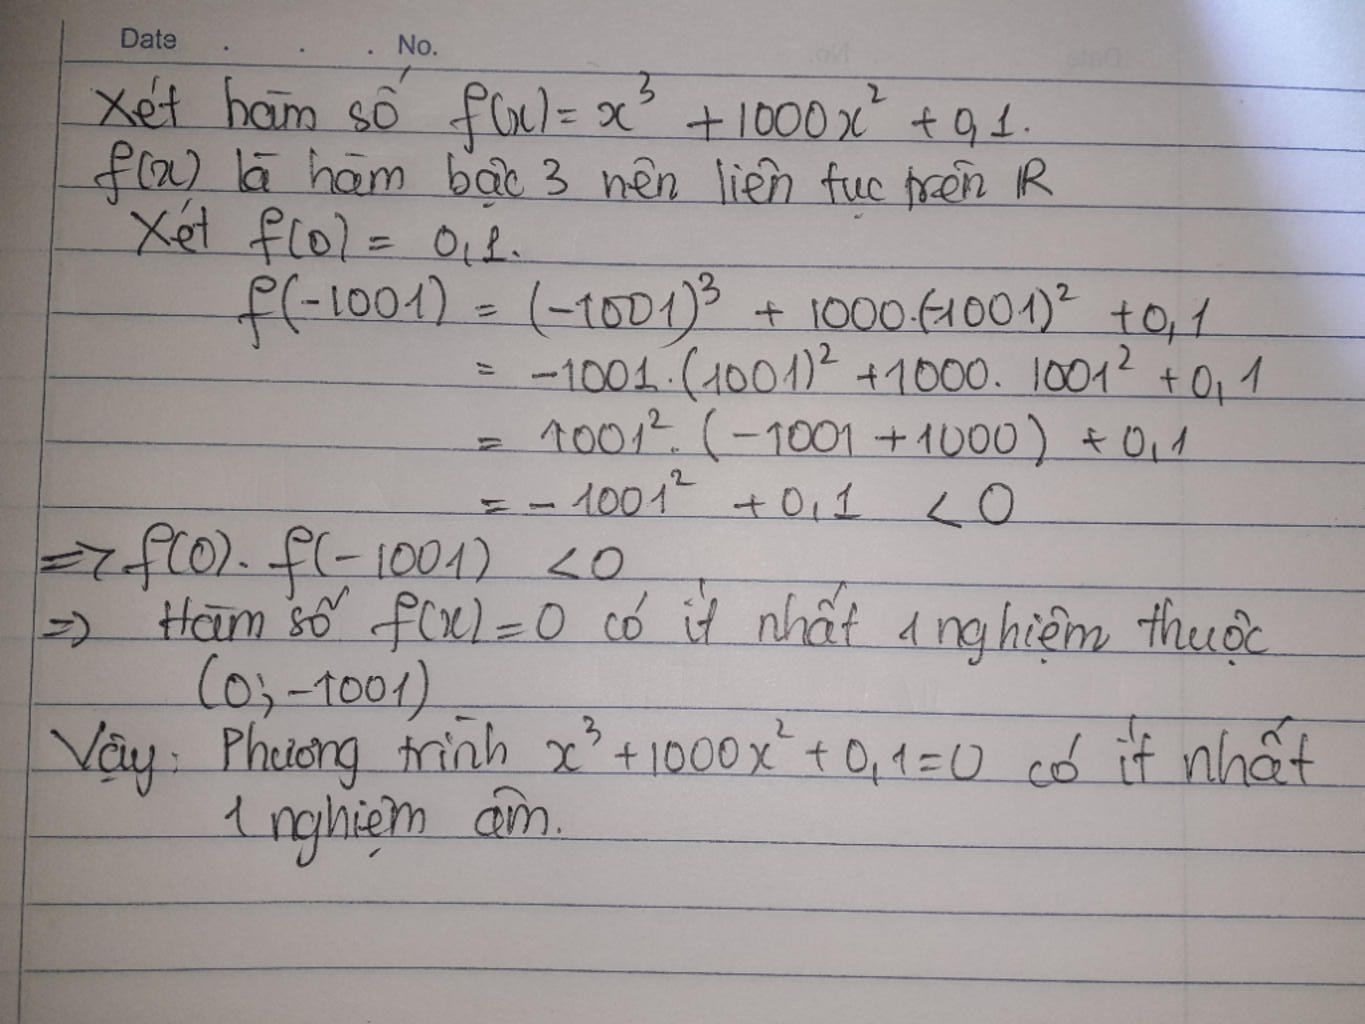 Date . . . No.
Xét hàm số f(x) = x³ + 1000x² + 0,1.
f(x) là hàm bậc 3 nên liên tục trên R
Xét f(0) = 0,1.
f(-1001) = (-1001)³ + 1000.(-1001)² + 0,1
= -1001.(1001)² + 1000. 1001² + 0,1
= 1001². (-1001 + 1000) + 0,1
= - 1001² + 0,1 < 0
=> f(0). f(-1001) < 0
=> Hàm số f(x) = 0 có ít nhất 1 nghiệm thuộc
(0; -1001)
Vậy: Phương trình x³ + 1000x² + 0,1 = 0 có ít nhất
1 nghiệm âm.